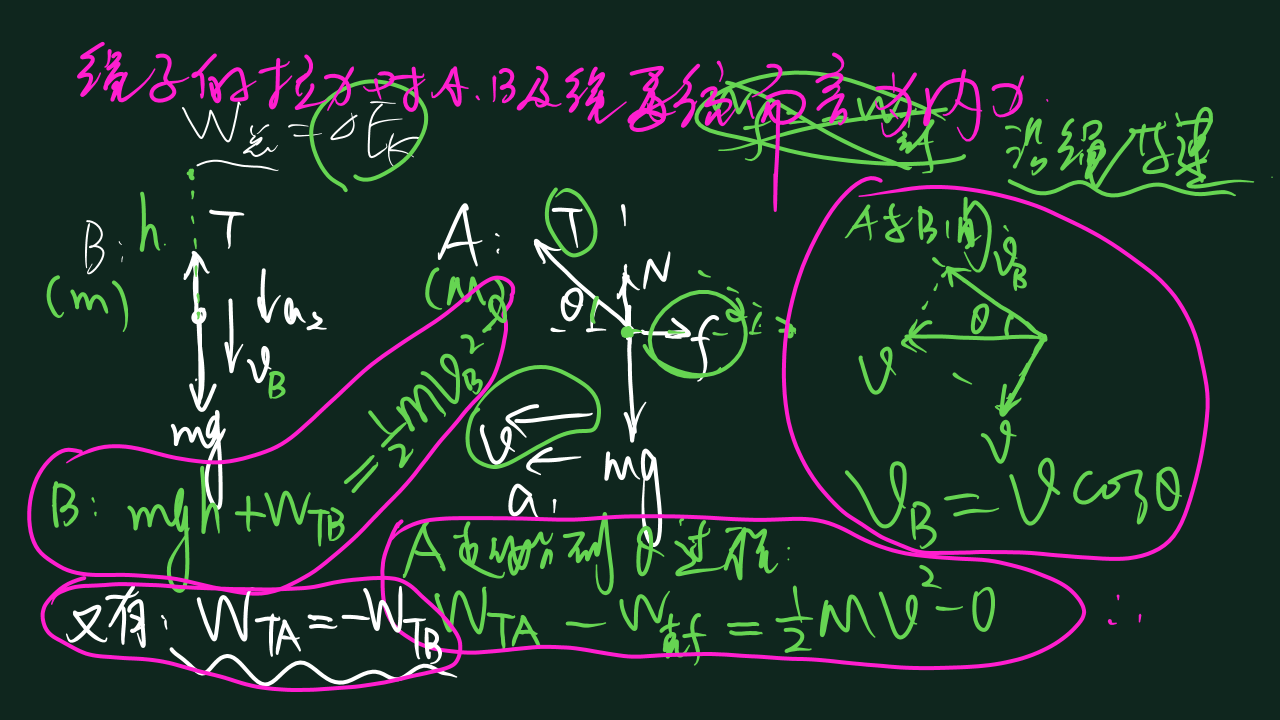 绳子的拉力对A、B及绳系统而言为内力.
W总=ΔEK
沿绳等速
B:
(m)
h
T
a2
vB
mg
A:
(m)
T
N
θ
f
v
a1
mg
A与B间:
vB
θ
v
v
vB=vcosθ
B: mgh+WTB=½mvB²
A由始到θ过程:
WTA-W克f=½mv²-0
又有: WTA=-WTB
∴